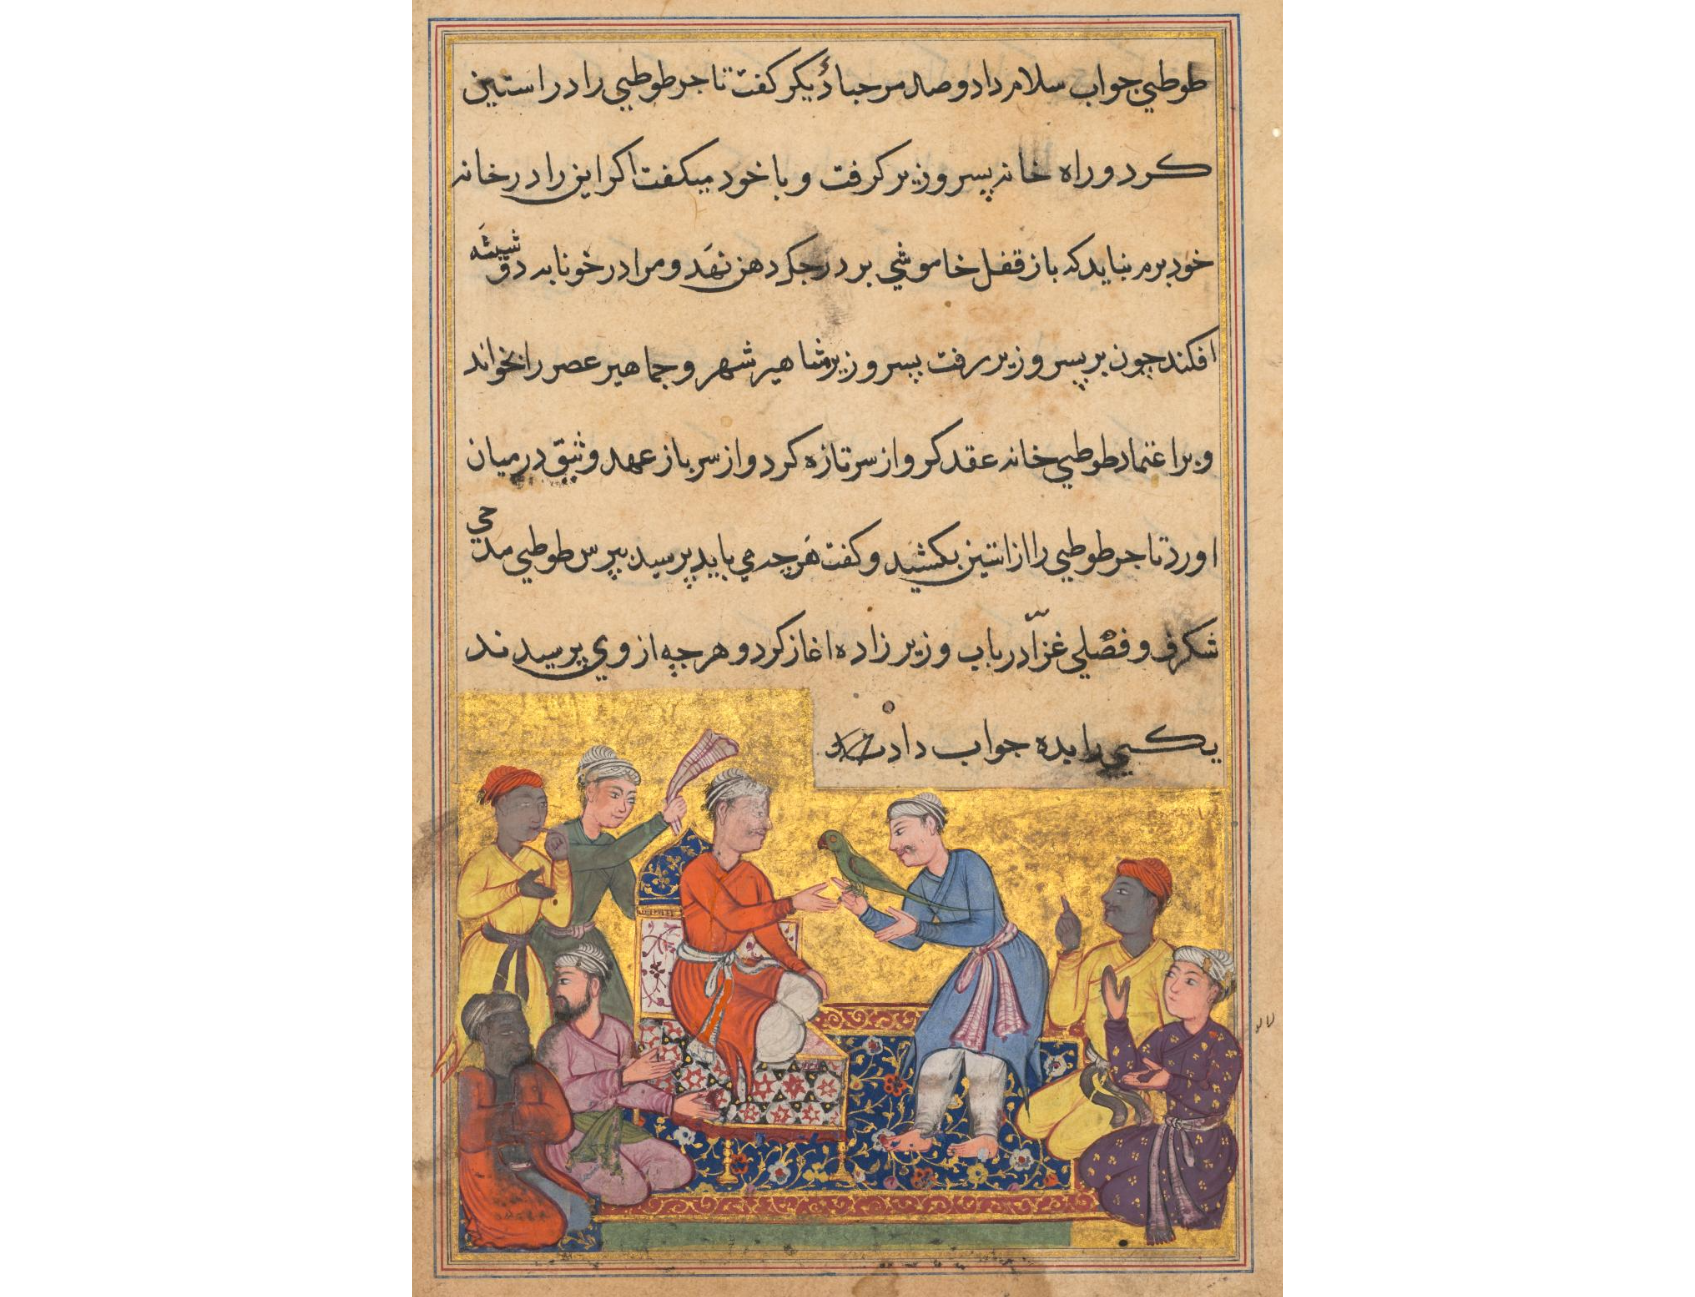 طوطیی جواب سلام داد و صد مرحبا دیگر گفت تاجر طوطیی را در استین
کرد و راه خانه پسر وزیر گرفت و با خود میگفت اگر این را در خانه
خود برم نباید که باز قفل خاموشی بر درجک دهن نهد و مرا در خونابه
افکند چون بر پسر وزیر رفت پسر وزیر مشاهیر شهر و جماهیر عصر را بخواند
و بر اعتماد طوطیی خانه عقد گرو از سر تازه کرد و از سر باز عهد وثیق در میان
اورد تاجر طوطیی را از استین بکشید و گفت هرچه می باید پرسید بپرس طوطیی مدحی
شگرف و فصلی غرّا در باب وزیر زاده اغاز کرد و هرچه از وی پرسیدند
یکیی را بده جواب داد